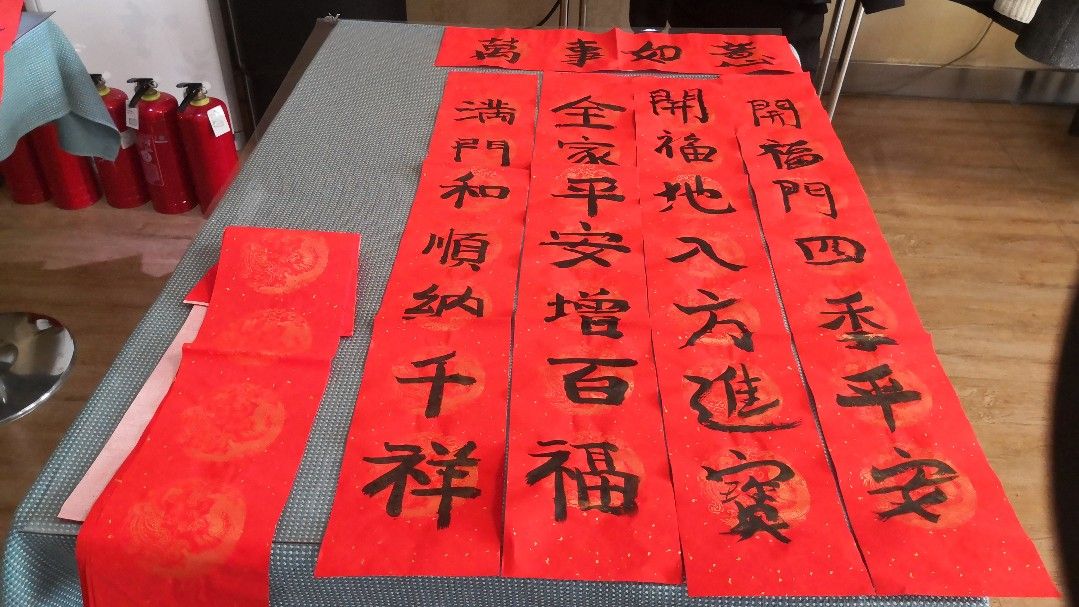 萬事如意
開福門四季平安
開福地入方進寶
全家平安增百福
満門和順納千祥